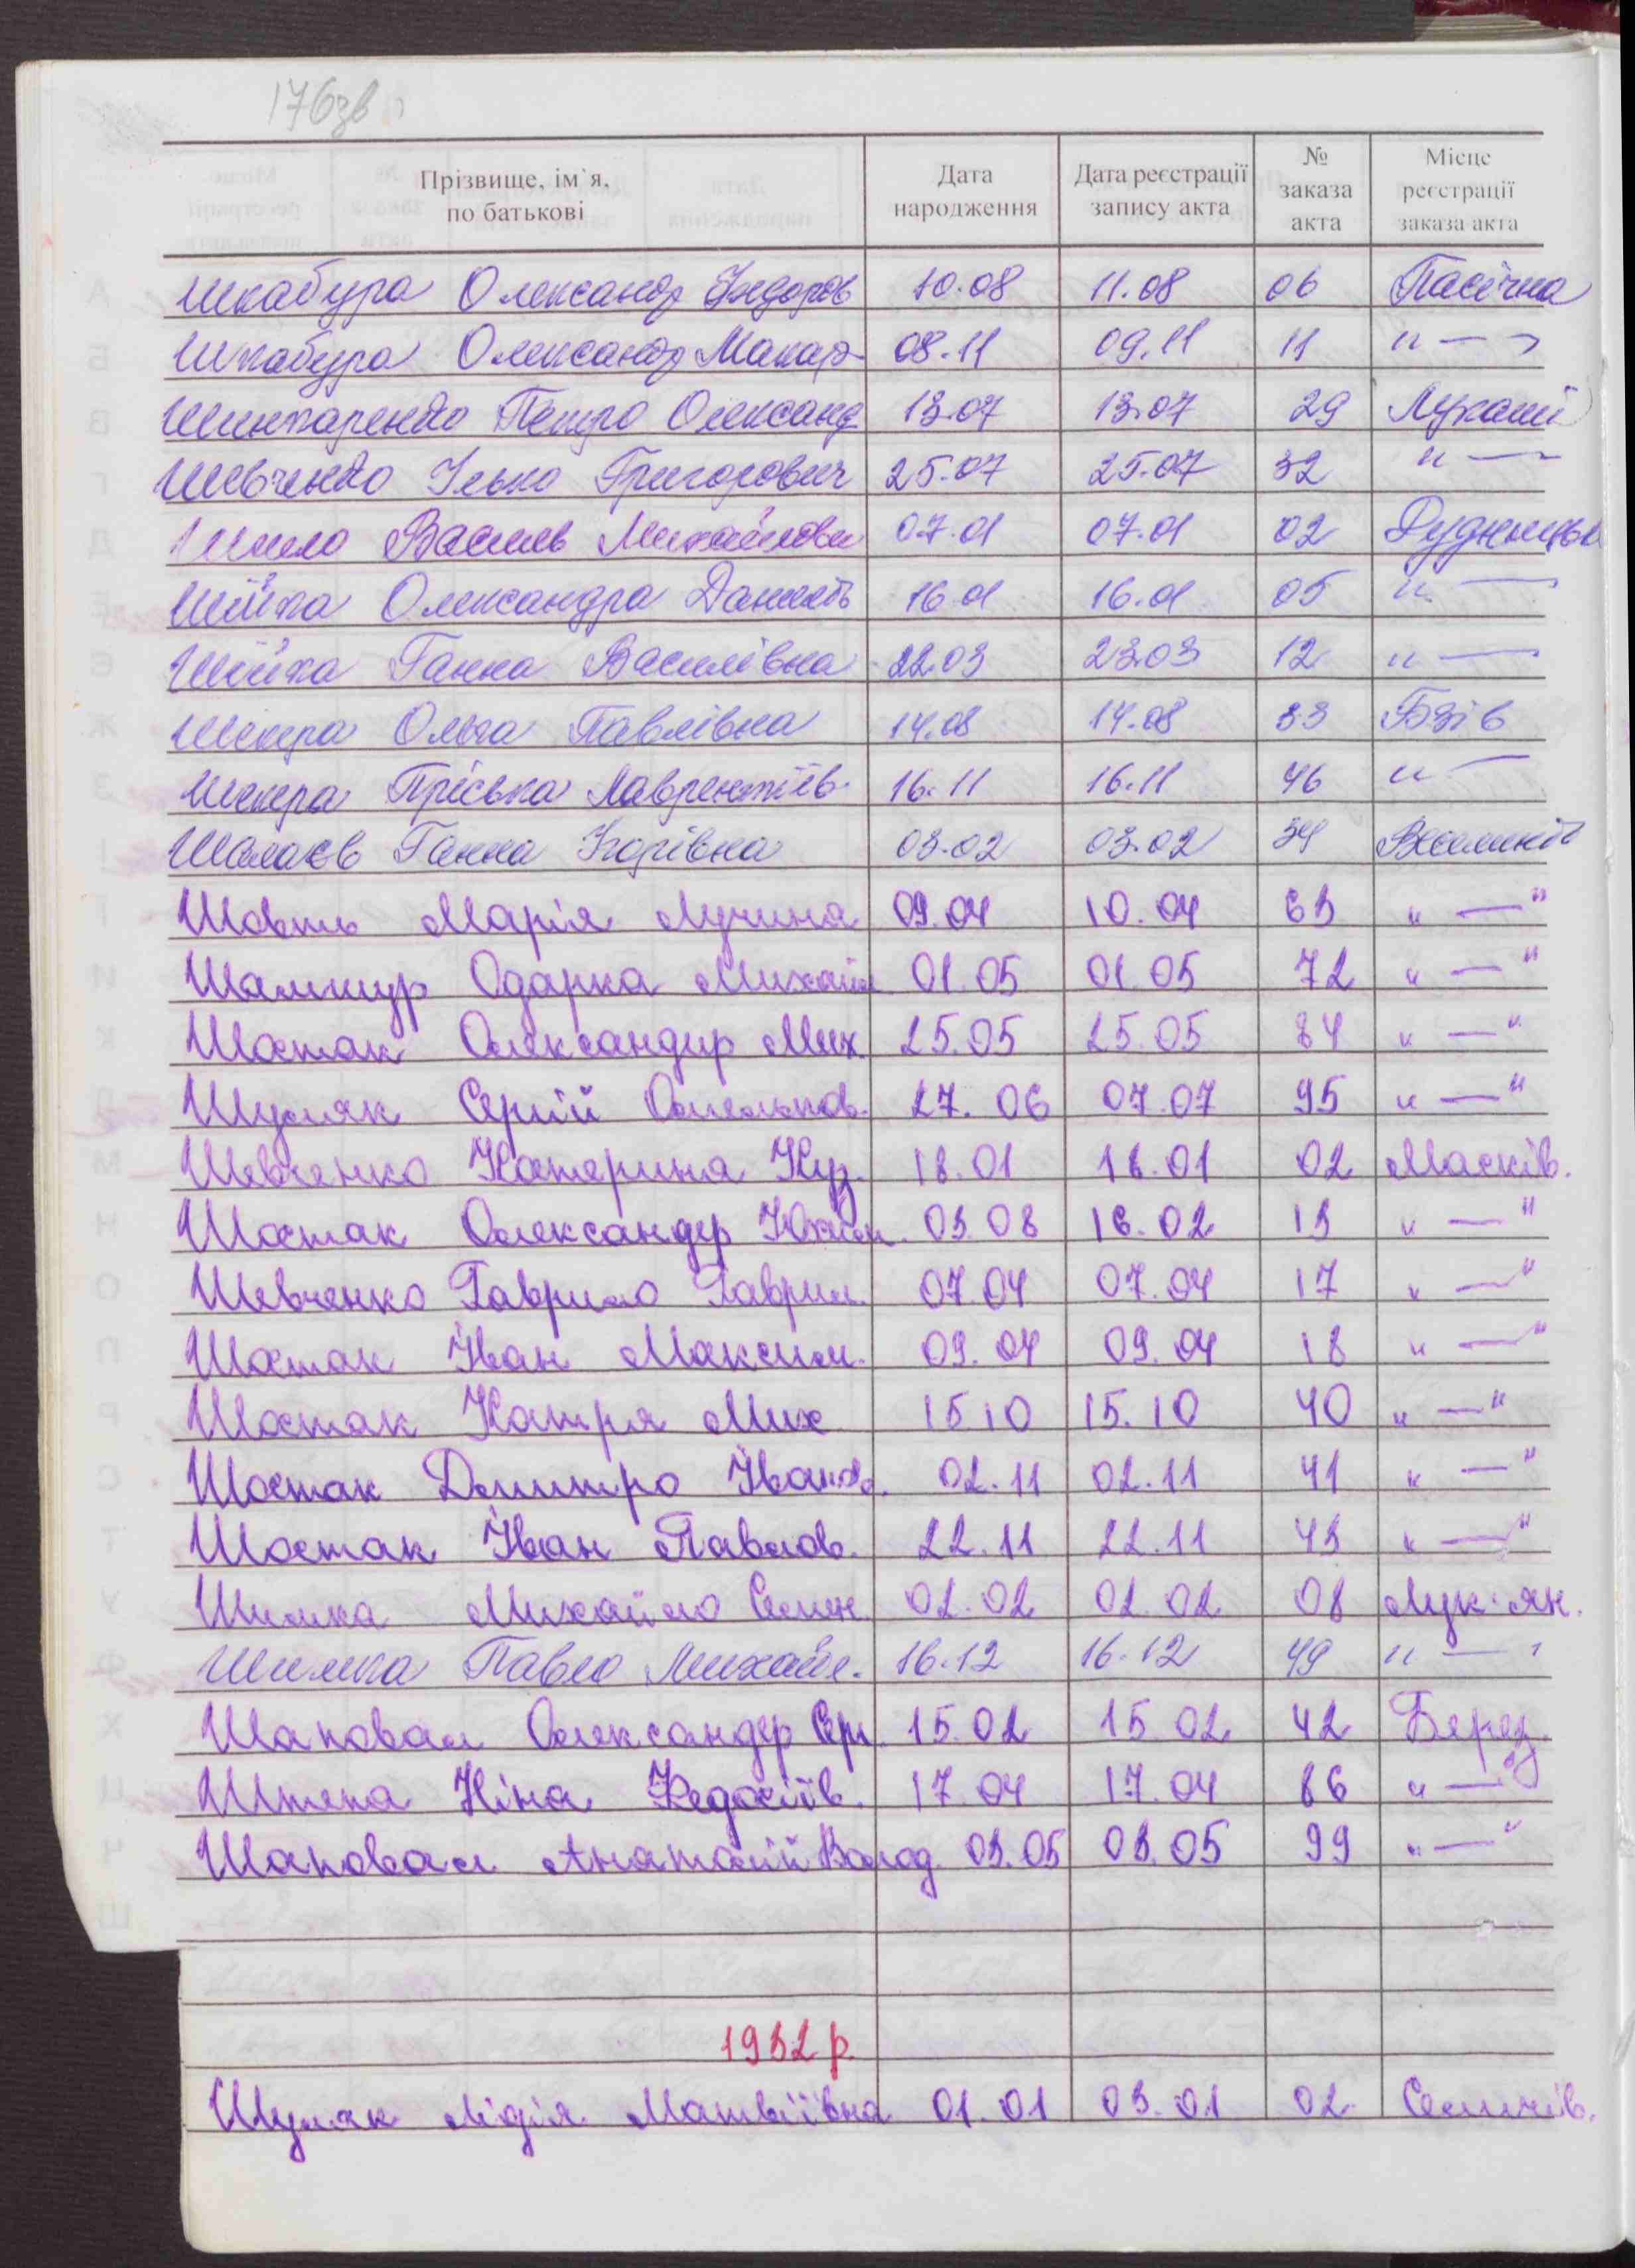 176зв
Прізвище, ім`я, по батькові | Дата народження | Дата реєстрації запису акта | № заказа акта | Місце реєстрації заказа акта
Шкабура Олександр Федоров 10.08 11.08 06 Пасічна
Шкабура Олександр Макар 08.11 09.11 11 " — "
Шинкаренко Петро Олександ 13.07 13.07 29 Лукаші
Шевченко Ілько Григорович 25.07 25.07 32 " —
Шило Василь Михайлови 07.01 07.01 02
Шійка Олександра 16.01 16.01 05 " —
Шійка Ганна Василівна 22.03 23.03 12 " —
Шекера Ольга Павлівна 14.08 14.08 33 Бзів
Шекера Пріська Лаврентіїв. 16.11 16.11 46 " —
Шалаєв Ганна Ігорівна 03.02 03.02 34
Шовть Марія Лукина 09.04 10.04 63 " — "
Шамшур Одарка Михайл 01.05 01.05 72 " — "
Шостак Олександр Мих. 25.05 25.05 84 " — "
Шуляк Сергій Омельков. 27.06 07.07 95 " — "
Шевченко Катерина Куз. 18.01 18.01 02 Масків.
Шостак Олександер Юхим. 03.08 16.02 13 " — "
Шевченко Гаврило Гаврил. 07.04 07.04 17 " — "
Шостак Іван Максим. 09.04 09.04 18 " — "
Шостак Катря Мих 15.10 15.10 40 " — "
Шостак Дмитро Іванов. 02.11 02.11 41 " — "
Шостак Іван Павлов. 22.11 22.11 43 " — "
Шимка Михайло Семен. 02.02 02.02 08 Лук'ян.
Шимка Павло Михайл. 16.12 16.12 49 " — "
Шаповал Олександер Сер. 15.02 15.02 42 Берез.
Штепа Ніна Федосіїв. 17.04 17.04 86 " — "
Шаповал Анатолій Волод. 03.05 03.05 99 " — "
1932 р.
Шуляк Лідія Матвіївна 01.01 03.01 02 Селичів.